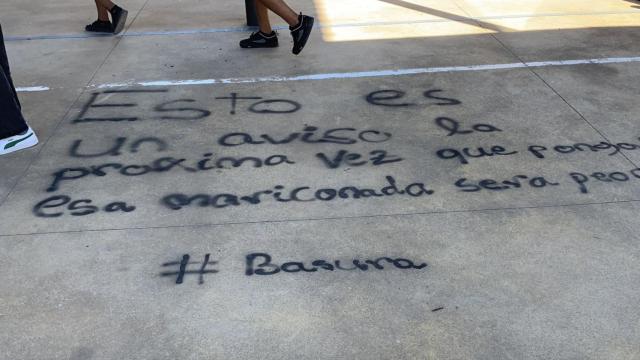 Esto es
un aviso la
proxima vez que pongo
esa mariconada sera peor
# Basura